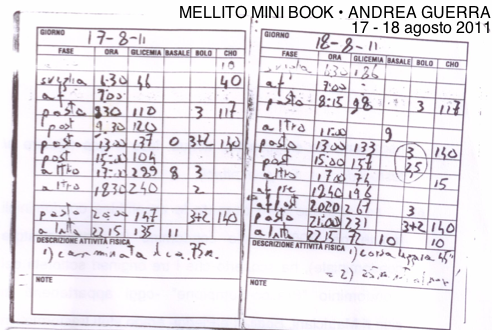 MELLITO MINI BOOK • ANDREA GUERRA
17 - 18 agosto 2011
GIORNO 17-8-11
FASE ORA GLICEMIA BASALE BOLO CHO
10
sveglia 6:30 46 40
7:00
pasto 830 110 3 117
post 9:30 120
pasto 13:00 137 0 3+2 140
post 15:00 104
altro 17:00 299 8 3
altro 1830 240 2
pasto 20:00 147 3+2 140
a letto 2215 135 11
DESCRIZIONE ATTIVITÀ FISICA
1) camminata
NOTE
GIORNO 18-8-11
FASE ORA GLICEMIA BASALE BOLO CHO
sveglia 6:30 186
7:00 -
pasto 8:15 98 3 117
altro 11:00 9
pasto 13:00 133 3 140
post 15:00 157 2,5
altro 17:00 74 15
1840 196
2020 267 3
pasto 21:00 231 3+2 140
a letto 2215 72 10 10
DESCRIZIONE ATTIVITÀ FISICA 1) corsa leggera
= 2)
NOTE